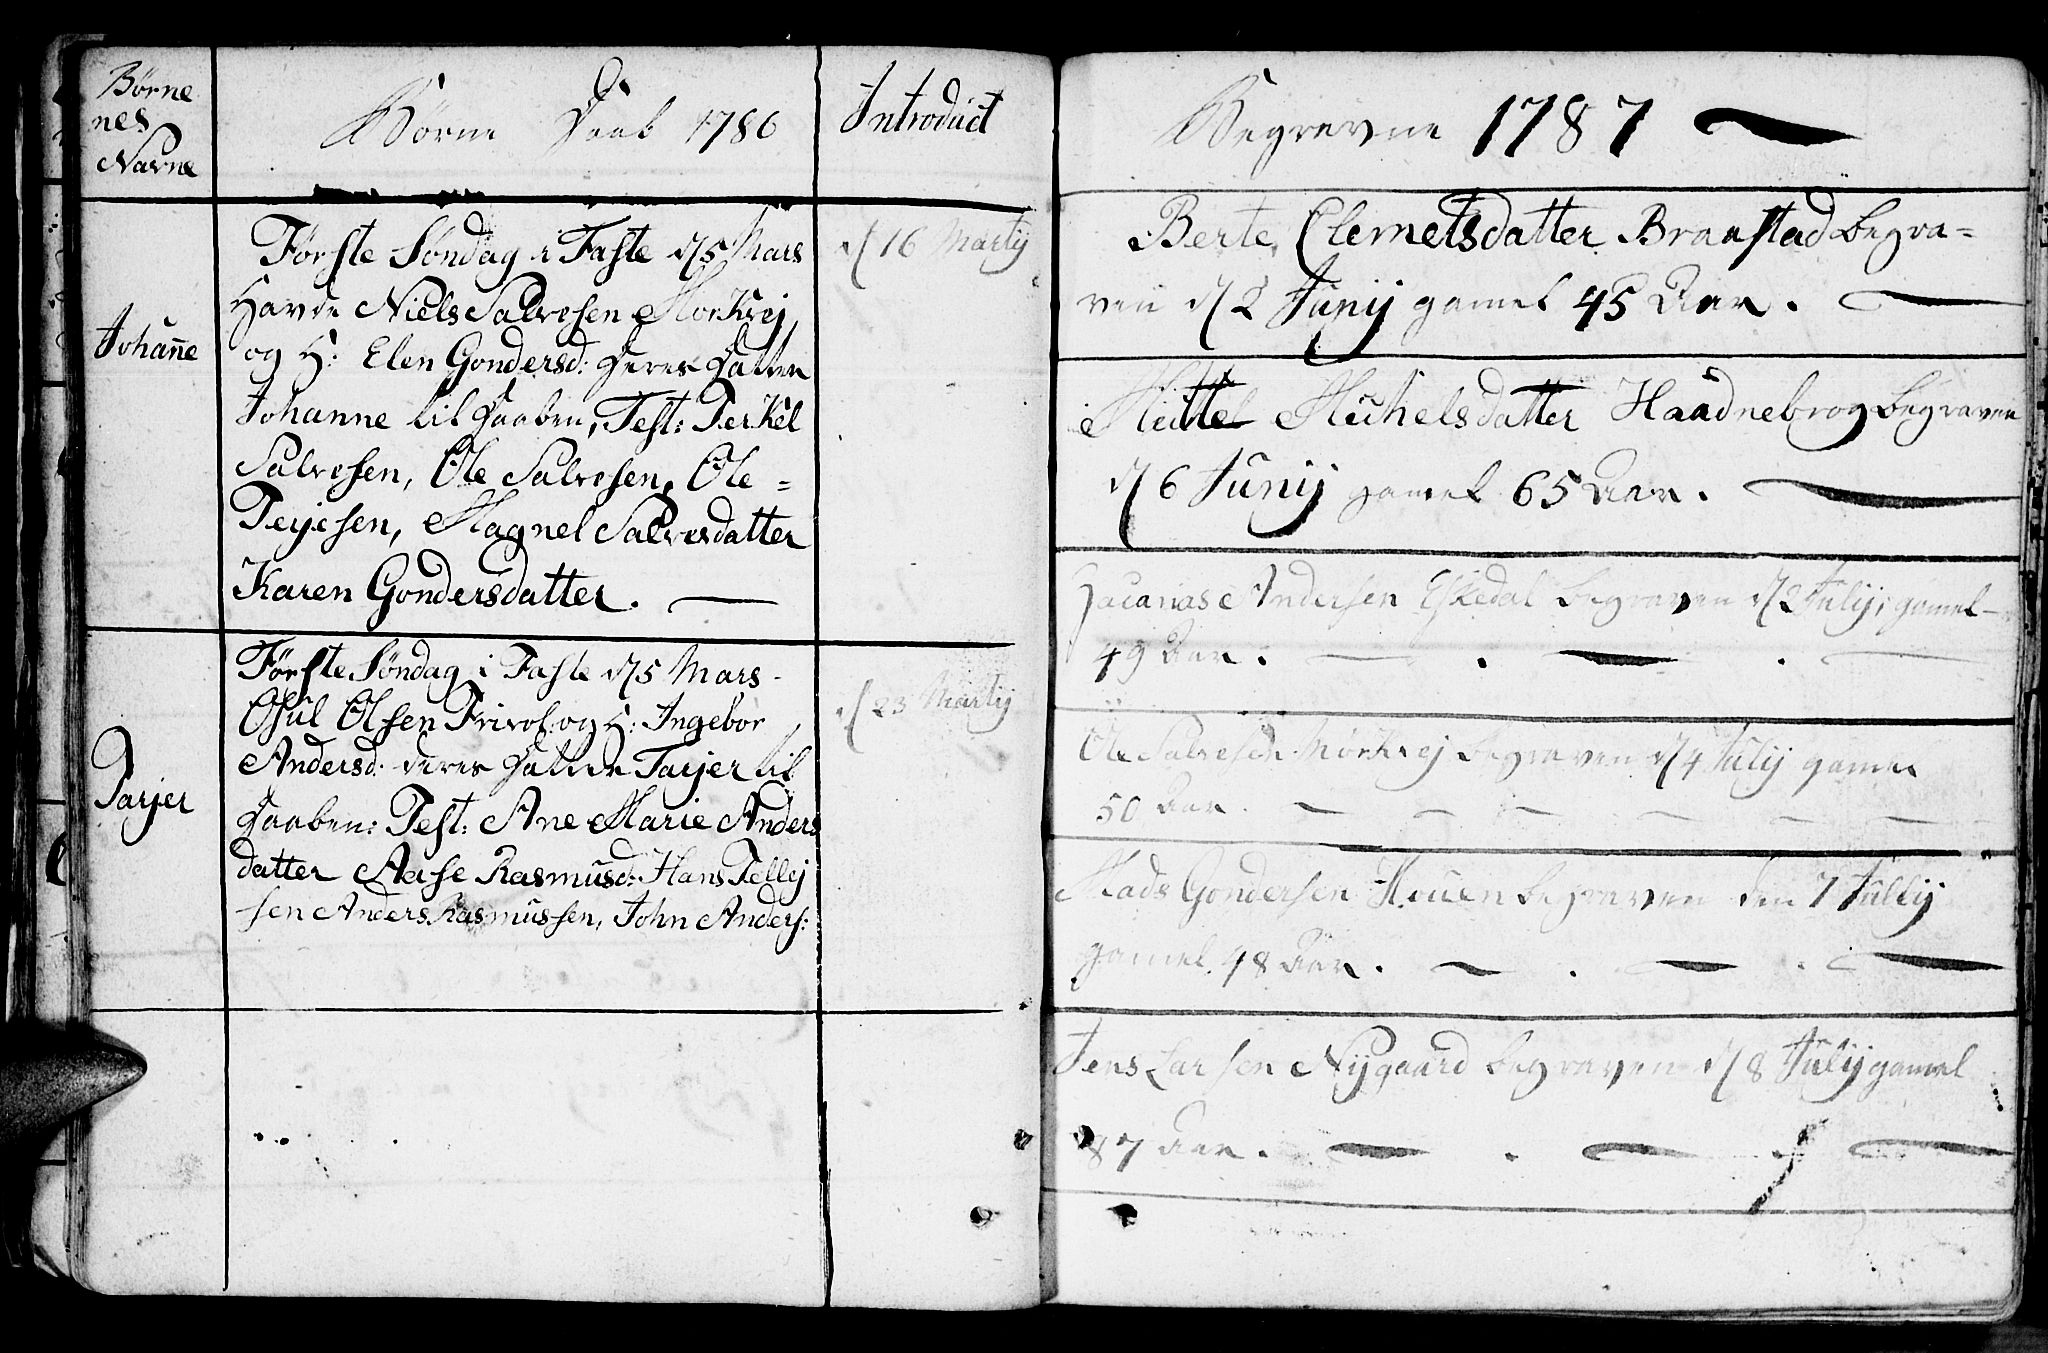 Børne
nes
Navne
Børne Daab 1786
Introduct
Første Søndag i Faste d/5 Mars
Havde Niels Salvesen Morkvej
og H: Elen Gondersd: deres Datter
Johanne
Johanne til Daaben, Test: Terkel
Salvesen, Ole Salvesen, Ole =
Terjesen, Magnel Salvesdatter
Karen Gondersdatter.
d/16 Martij
Første Søndag i Faste d/5 Mars
Osul Olsen Frivol og H: Ingebor
Andersd: deres Datter Tarjer til
Tarjer
Daaben: Test: Ane Marie Anders
datter Aase Rasmusd: Hans Tellej
sen Anders Rasmussen, John Anders:
d/23 Martij
Begravne 1787
Berte Clemetsdatter Braastad begra=
ven d/2 Junij gamel 45 Aar.
Mittel Michelsdatter Haadnebrog begraven
d/6 Junij gamel 65 Aar.
Zacarias Andersen Eskedal begraven d/2 Julij, gamel
49 Aar.
Ole Salvesen Mörkvej begraven d/4 Julij gamel
50 Aar.
Mads Gondersen Houen begraven den 7 Julij
gamel 48 Aar.
Jens Larsen Nijgaard begraven d/8 Julij gamel
87 Aar.